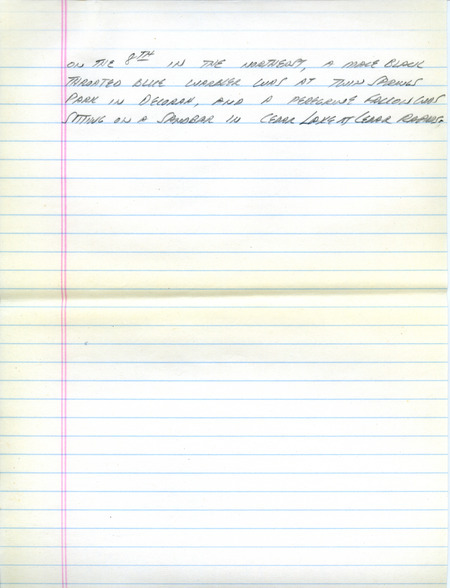 ON THE 8TH IN THE NORTHEAST, A MALE BLACK
THROATED BLUE WARBLER WAS AT TWIN SPRINGS
PARK IN DECORAH, AND A PEREGRINE FALCON WAS
SITTING ON A SANDBAR IN CEDAR LAKE AT CEDAR RAPIDS.